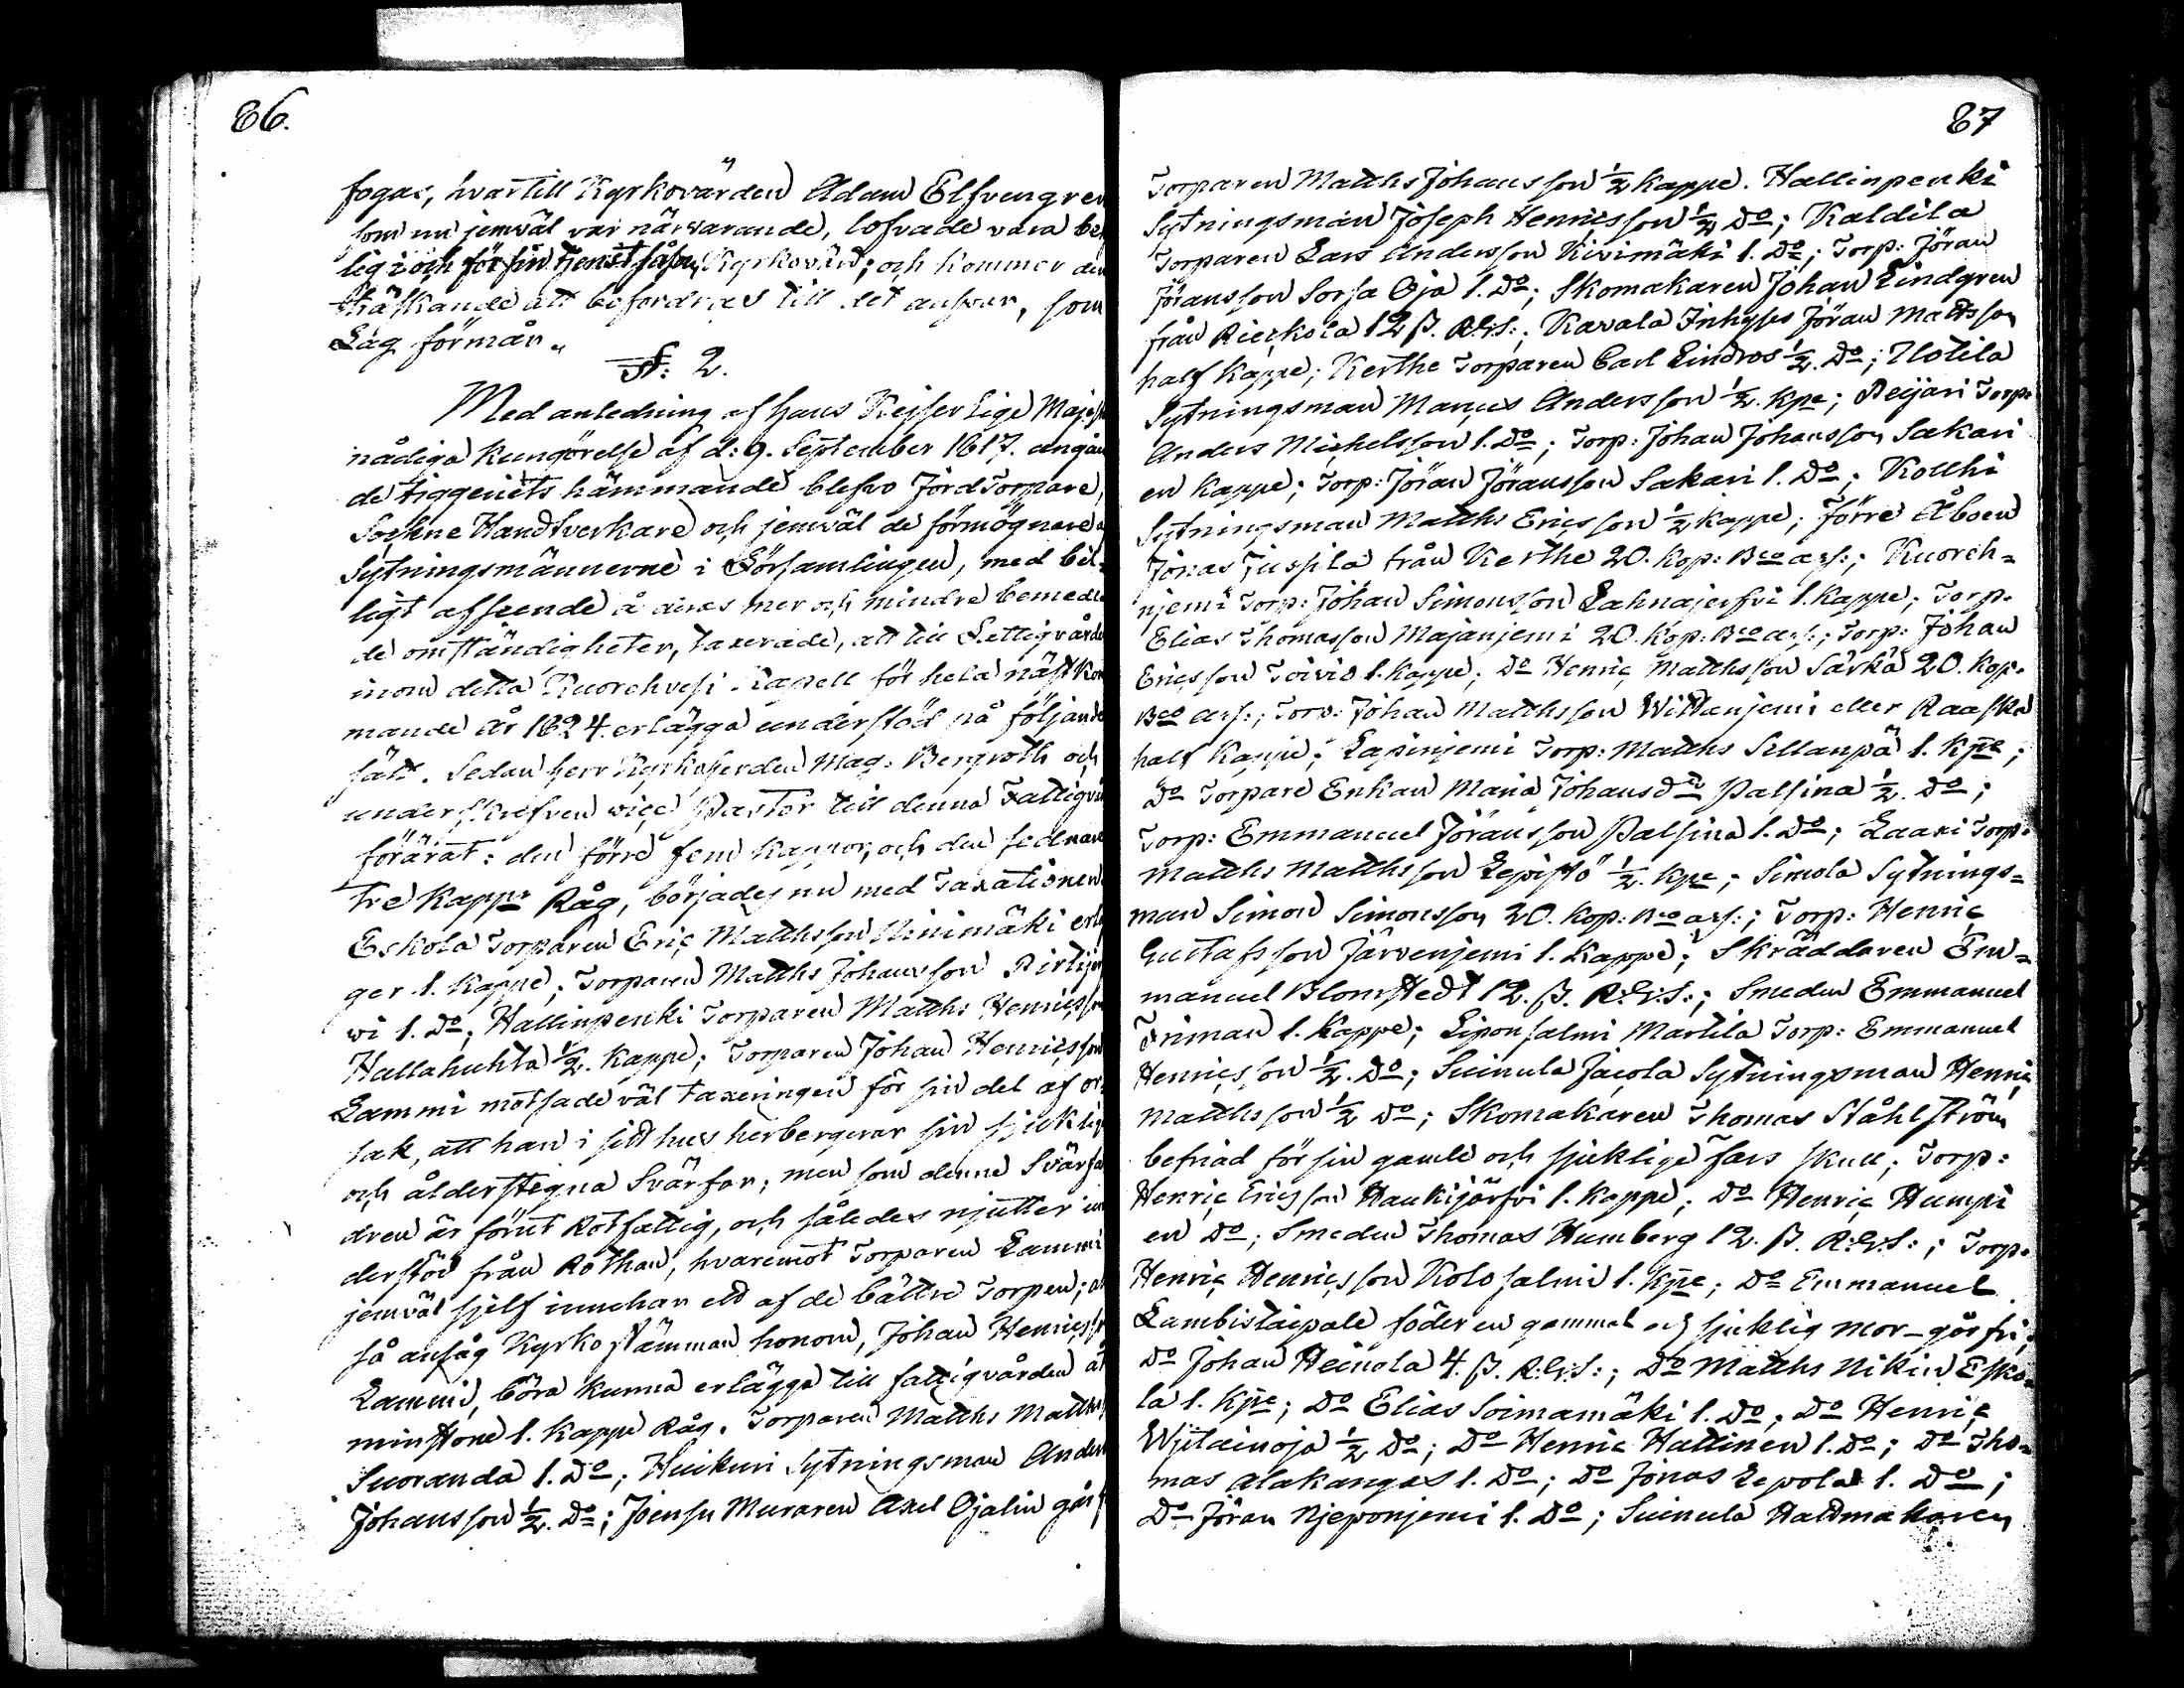 86.
fogas, hvartill Kyrkovärden Adam Elfvengren
som nu jemväl var närvarande, lofvade vara be
lig i och för sin tjenst såsom Kyrkovärd; och kommer den
tredskande att befordras till det ansvar, som
Lag förmår.
§: 2.
Med anledning af Hans Keijserlige Majes
nådiga Kungörelse af d: 9. September 1817. angåen
de tiggeriets hämmande blefvo Jord Torpare,
Sockne Handtverkare och jemväl de förmögnare
Sytningsmännerne i Församlingen, med bil-
ligt afseende å deras mer och mindre bemedla
de omständigheter, taxerade, att till Fattigvården
inom detta Kuorehvesi Kapell för hela nästkom
mande år 1824. erlägga understöd på följande
sätt. Sedan Herr Kyrkoherden Mag: Bergroth och
underskrefven vice Pastor till denna Fattigvå
förärat: den förre fem kappor, och den sednare
tre kappr Råg, börjades nu med Taxationen
Eskola Torparen Eric Matthsson Ninimäki erläg
ger 1. Kappe; Torparen Matths Johansson Pirtijer
wi 1. Do; Hallinpenki Torparen Matths Henricsson
Hallahuhta 1/2. Kappe; Torparen Johan Henricsson
Lammi motsade väl taxeringen för sin del af or
sak, att han i sitt hus herbergerar sin sjuklige
och ålderstegna Svärfar; men som denne Svärfa
dren är förut Rotfattig, och således njutter un
derstöd från Rothan, hvaremot Torparen Lammi
jemväl sjelf innehar ett af de bättre Torpen; al
så ansåg Kyrkostämman honom, Johan Henricsson
Lammi, böra kunna erlägga till fattigvården åt
minstone 1. Kappe Råg. Torparen Matths Matths
Suoranda 1. Do; Huikuri Sytningsman Anders
Johansson 1/2. Do; Joensu Muraren Axel Ojalin går f
87
Torparen Matths Johansson 1/2 kappe. Hallinpenki
Sytningsman Joseph Henricsson 1/2 Do; Kaldila
Torparen Lars Andersson Kivimäki 1. Do; Torp: Jöran
Jöransson Sorsa Oja 1. Do; Skomakaren Johan Lindgren
från Rieckola 12 β. R:G:S:; Kavala Inhyses Jöran Mattsson
half Kappe; Kerthe Torparen Carl Lindros 1/2. Do; Ilotila
Sytningsman Marcus Andersson 1/2. Kpe; Reijari Torp:
Anders Michelsson 1. Do; Torp: Johan Johansson Sakari
en Kappe; Torp: Jöran Jöransson Sakari 1. Do; Kolthi
Sytningsman Matths Ericsson 1/2 Kappe; Förre Åboen
Jonas Juspila från Kerthe 20. Kop: Bco ass:; Kuoreh-
njemi Torp: Johan Simonsson Lahnajerfvi 1. Kappe; Torp.
Elias Thomasson Majanjemi 20. Kop: Bco ass:; Torp: Johan
Ericsson Toivio 1. Kappe; Do Henric Matthsson Särkä 20. Kop.
Bco ass:; Torp: Johan Matthsson Wittanjemi eller Raaska
half Kappe; Lapinjemi Torp: Matths Sillanpä 1. Kpe;
Do Torpare Enkan Maria Johansdr Palsina 1/2. Do;
Torp: Emmanuel Jöransson Palsina 1. Do; Laari Torp:
Matths Matthsson Lepistö 1/2. Kpe; Simola Sytnings-
man Simon Simonsson 20. Kop: Bco ass:; Torp: Henric
Gustafsson Järvenjemi 1. Kappe; Skräddaren Em-
manuel Blomstedt 12. β. R:G:S:; Smeden Emmanuel
Friman 1. Kappe; Liponsalmi Martila Torp: Emmanuel
Henricsson 1/2. Do; Suinula Jacola Sytningsman Henric
Matthsson 1/2 Do; Skomakaren Thomas Ståhlström
befriad för sin gamle och sjuklige Fars skull; Torp:
Henric Ericsson Haukijärfvi 1. Kappe; Do Henric Humpi
en Do; Smeden Thomas Humberg 12. β. R:G:S:; Torp.
Henric Henricsson Kolosalmi 1. Kpe; Do Emmanuel
Lambistaipale föder en gammal och sjuklig mor - går fri;
Do Johan Heinola 4. β. R:G:S:; Do Matths Nikin Esko-
la 1. Kpe; Do Elias Soimamäki 1. Do; Do Henric
Wjitainoja 1/2 Do; Do Henric Hallinen 1. Do; Do Tho-
mas Alakangas 1. Do; Do Jonas Lepola 1. Do;
Do Jöran Njeponjemi 1. Do; Suinula Hattmakaren